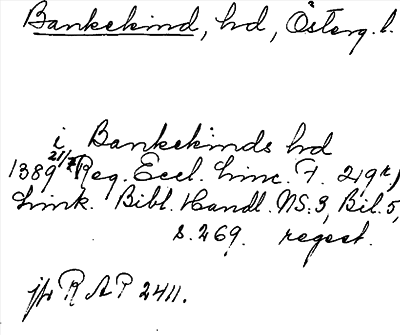 Bankekind, hd, Österg. l.
i Bankekinds hd
1389 21/7 Reg. Eccl. Linc. F. 219r,
Link. Bibl. Handl. NS. 3, Bil. 5,
s. 269. regest.
jfr RAP 2411.